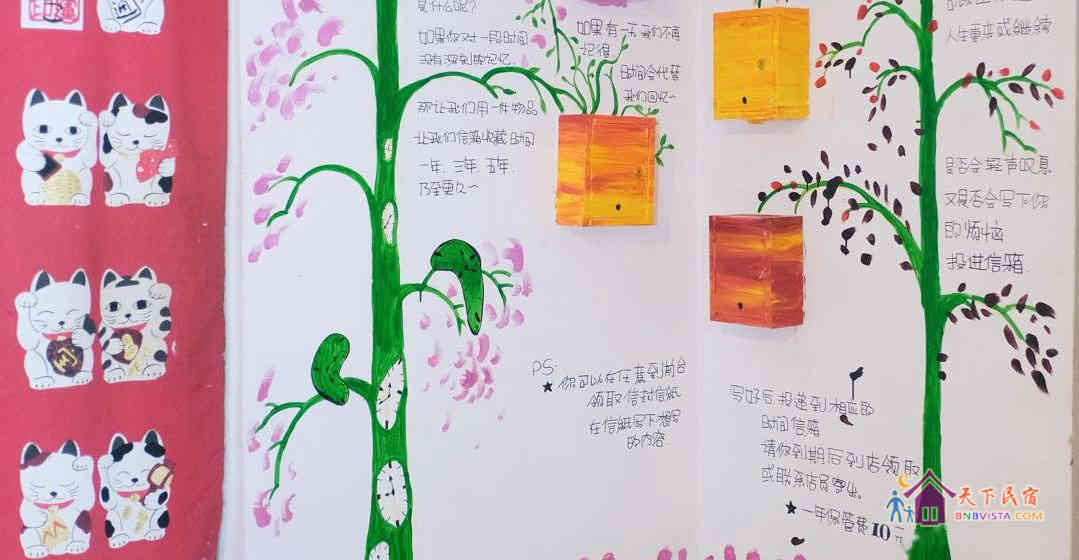 是什么呢?
如果你对一段时间
没有深刻的记忆.
那让我们用一件物品
让我们信箱收藏时间
一年. 三年. 五年.
乃至更久~
如果有一天我们不再
记得
时间会代替
我们回忆~
人生重来或继续
是否会轻声叹息
又是否会写下你
的烦恼
投进信箱.
PS:
★你可以在任意到前台
领取信封信纸
在信纸写下想写
的内容
写好后投递到相应的
时间信箱
请你到期后到店领取
或联系店员寄出。
★一年保管费10元
天下民宿
BNBVISTA.COM